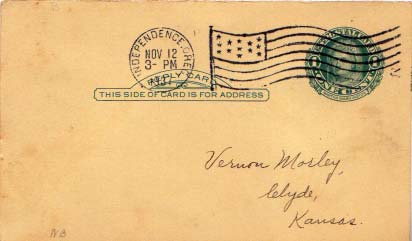 INDEPENDENCE
NOV 12
3- PM
REPLY CARD
THIS SIDE OF CARD IS FOR ADDRESS
Vernon Mosley,
Clyde,
Kansas.